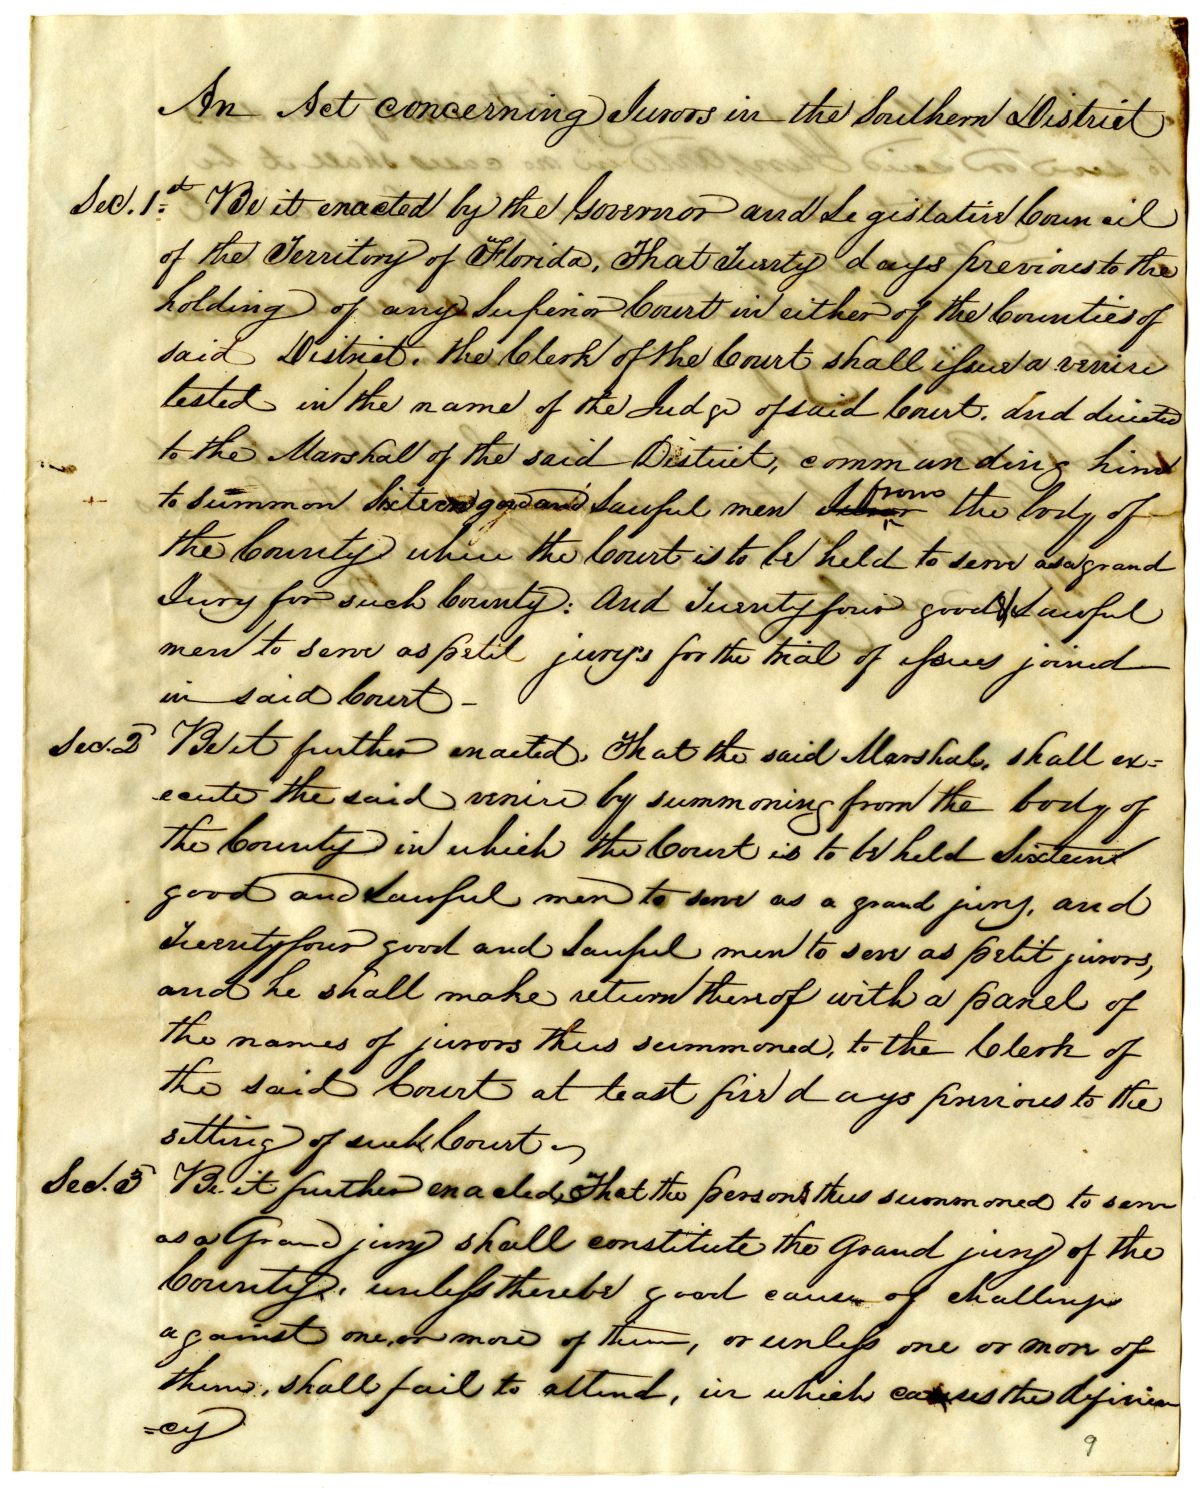 An Act concerning Jurors in the Southern District
Sec. 1st Be it enacted by the Governor and Legislative Council
of the Territory of Florida, That Twenty days previous to the
holding of any Superior Court in either of the Counties of
said District. the Clerk of the Court shall issue a venire
tested in the name of the Judge of said Court. and directed
to the Marshall of the said District, commanding him
to summon Sixteen good and Lawful men from the body of
the County where the Court is to be held to serve as a grand
Jury for such County: And Twenty four good & Lawful
men to serve as petit jury's for the trial of issues joined
in said Court –
Sec. 2 Be it further enacted. That the said Marshal, shall ex=
ecute the said venire by summoning from the body of
the County in which the Court is to be held Sixteen
good and Lawful men to serve as a grand jury, and
Twenty four good and Lawful men to serve as petit jurors,
and he shall make return thereof with a panel of
the names of jurors thus summoned, to the Clerk of
the said Court at least five days previous to the
setting of such Court –
Sec. 3 Be it further enacted, That the persons thus summoned to serve
as a Grand jury shall constitute the Grand jury of the
County, unless there be good cause of challenge
against one, or more of them, or unless one or more of
them, shall fail to attend, in which causes the deficien
=cy
9